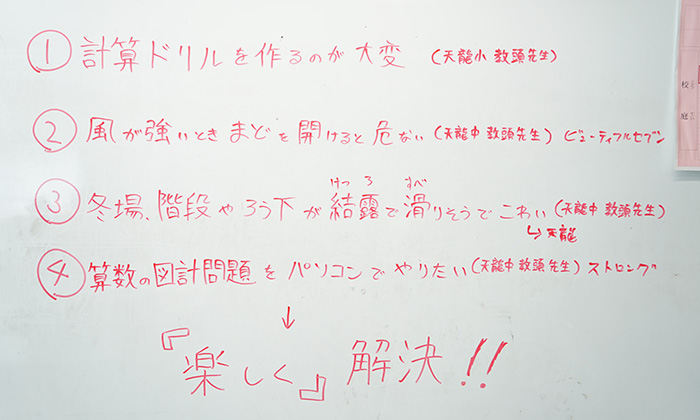 ① 計算ドリルを作るのが大変 (天龍小 教頭先生)
② 風が強いときまどを開けると危ない (天龍中 教頭先生) ビューティフルセブン
けつ ろ すべ
③ 冬場、階段やろう下が結露で滑りそうでこわい (天龍中 教頭先生)
↳天龍
④ 算数の図計問題をパソコンでやりたい (天龍中 教頭先生) ストロング
↓
『楽しく』解決!!
校
庭